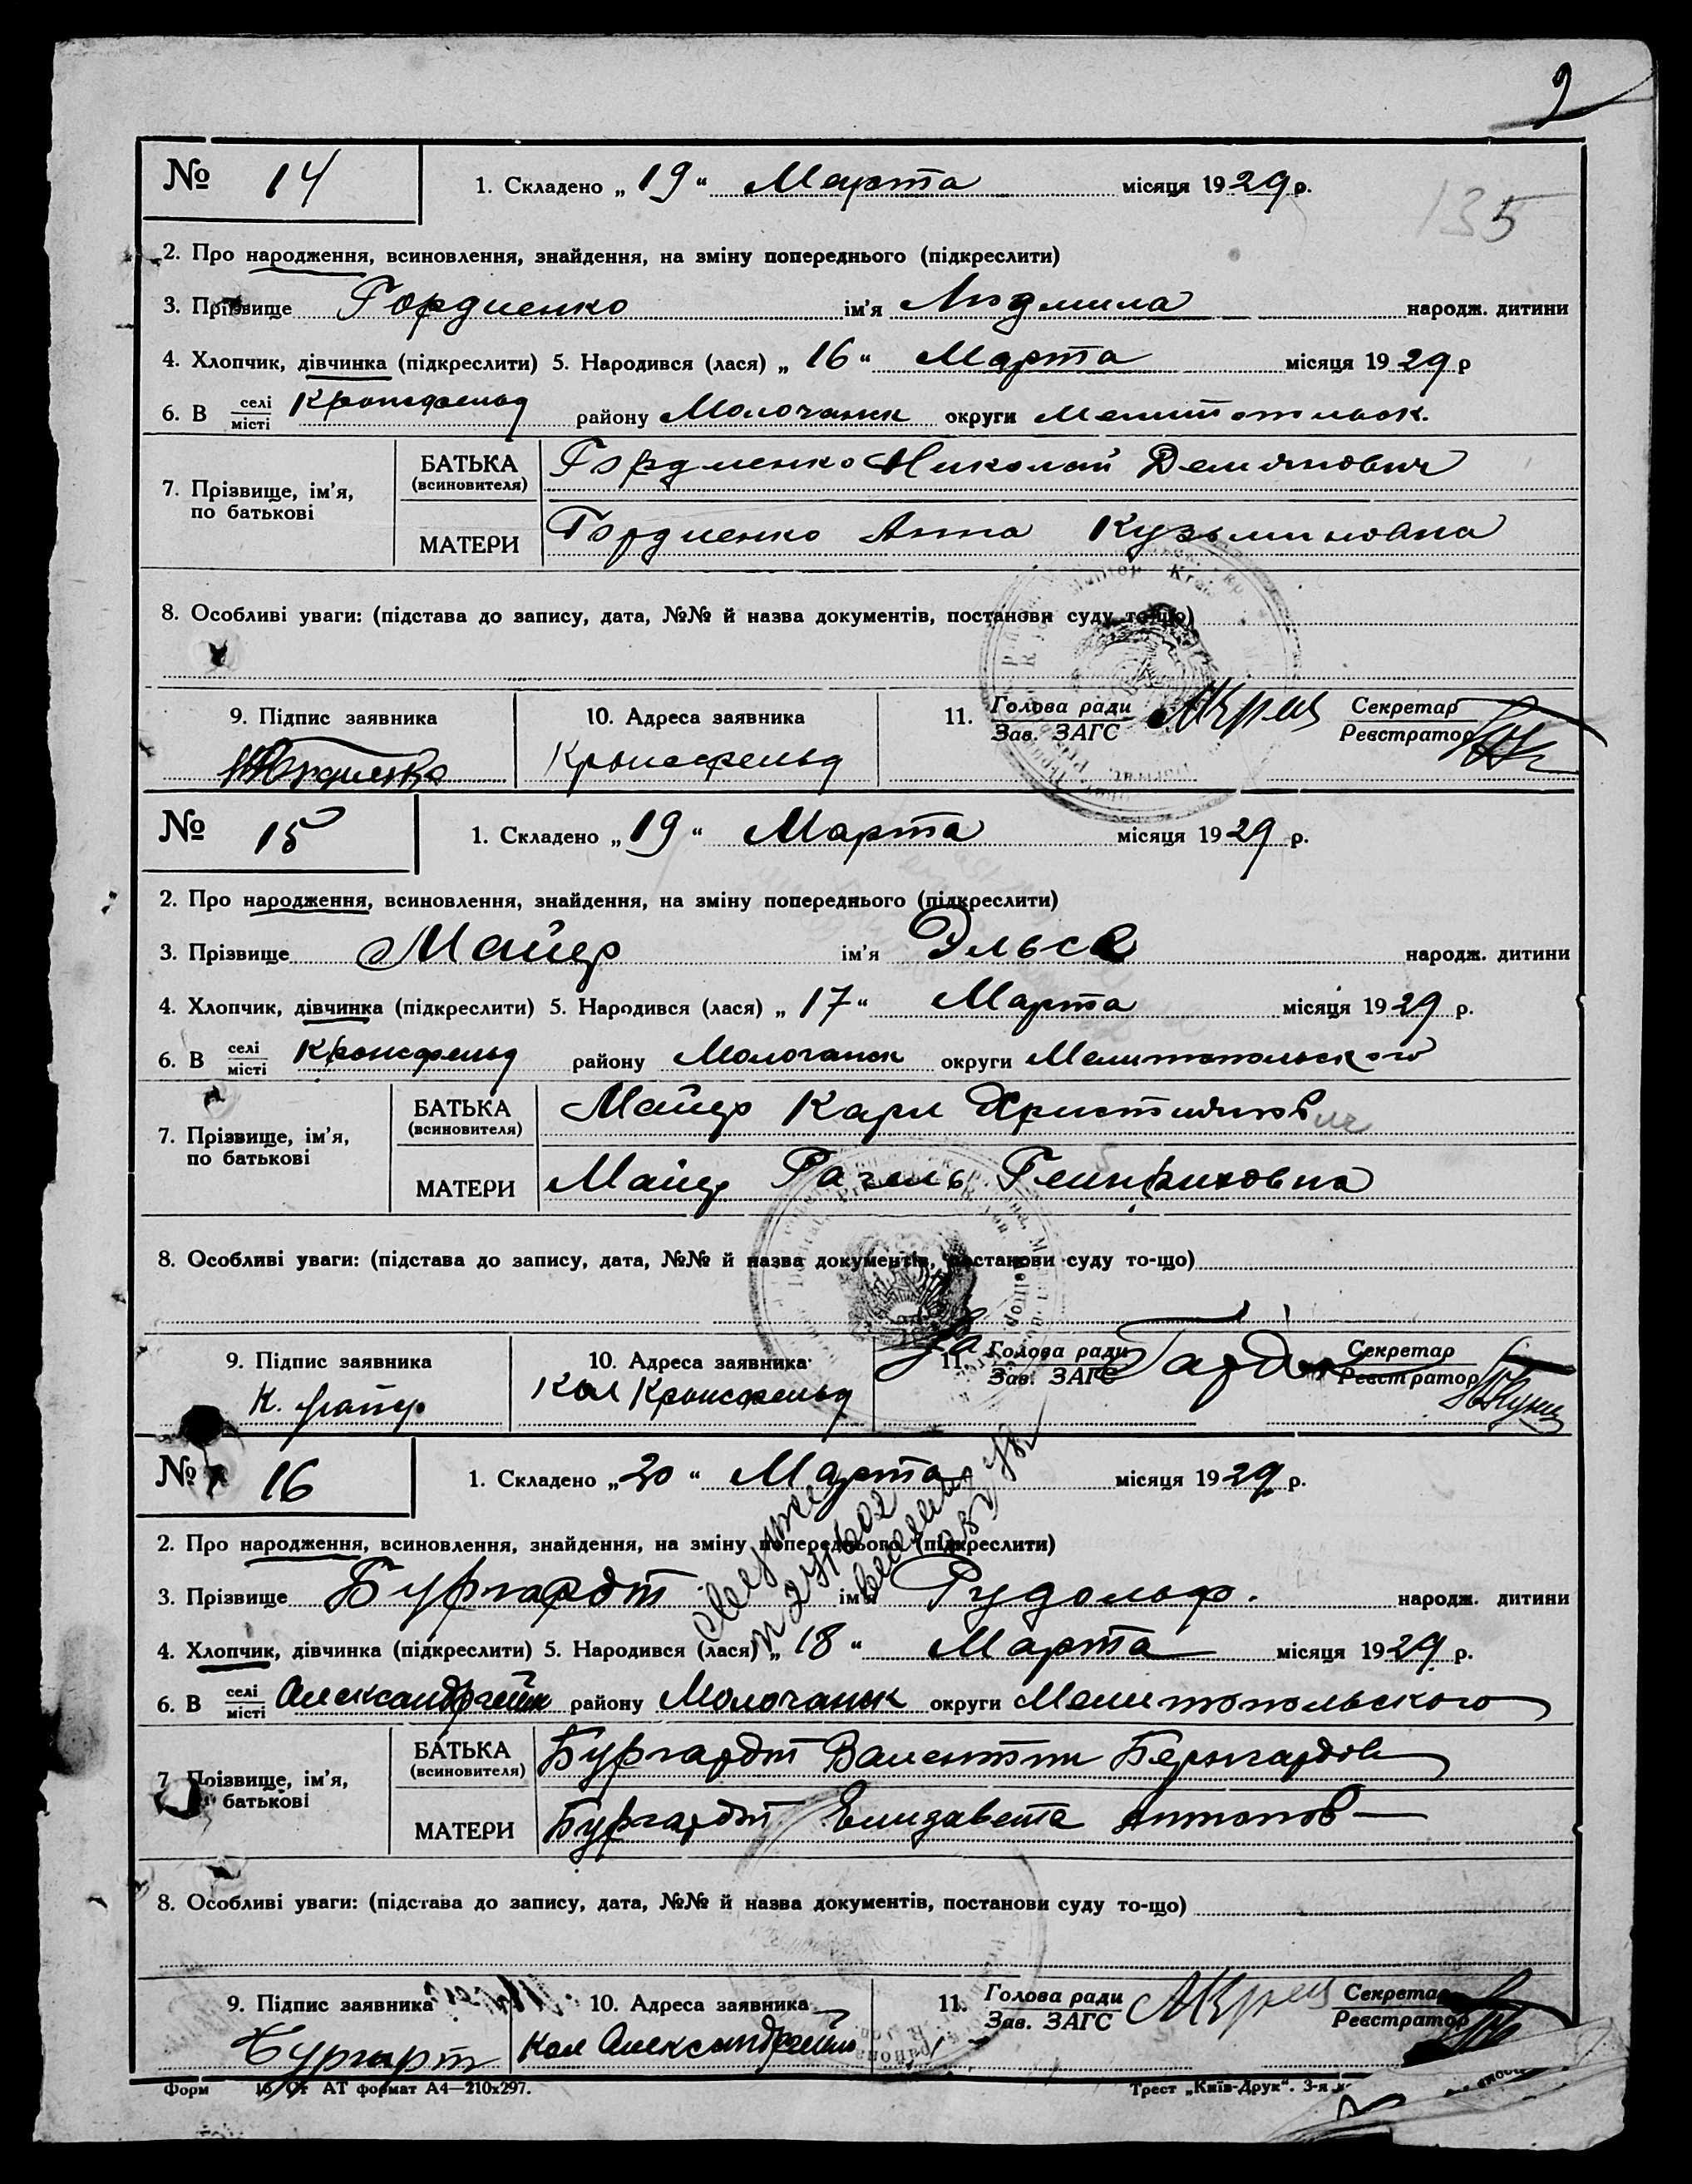 2
135
№ 14 1. Складено „ 19 “ Марта місяця 1929 р.
2. Про народження, всиновлення, знайдення, на зміну попереднього (підкреслити)
3. Прізвище Гордиенко ім'я Людмила народж. дитини
4. Хлопчик, дівчинка (підкреслити) 5. Народився (лася) „ 16 “ Марта місяця 1929 р
6. В селі/місті Кронсфельд району Молочанск округи Мелитопольск.
7. Прізвище, ім'я, по батькові БАТЬКА (всиновителя) Гордиенко Николай Демянович
МАТЕРИ Гордиенко Анна Кузьминовна
8. Особливі уваги: (підстава до запису, дата, №№ й назва документів, постанови суду то-що)
9. Підпис заявника 10. Адреса заявника 11. Голова ради/Зав. ЗАГС Секретар/Реєстратор
Кронсфельд
№ 15 1. Складено „ 19 “ Марта місяця 1929 р.
2. Про народження, всиновлення, знайдення, на зміну попереднього (підкреслити)
3. Прізвище Майер ім'я Эльса народж. дитини
4. Хлопчик, дівчинка (підкреслити) 5. Народився (лася) „ 17 “ Марта місяця 1929 р.
6. В селі/місті Кронсфельд району Молочанск округи Мелитопольского
7. Прізвище, ім'я, по батькові БАТЬКА (всиновителя) Майер Карл Християнович
МАТЕРИ Майер Рагель Генриховна
8. Особливі уваги: (підстава до запису, дата, №№ й назва документів, постанови суду то-що)
9. Підпис заявника 10. Адреса заявника 11. Голова ради/Зав. ЗАГС Секретар/Реєстратор
К. Майер Кол Кронсфельд
№ 16 1. Складено „ 20 “ Марта місяця 1929 р.
2. Про народження, всиновлення, знайдення, на зміну попереднього (підкреслити)
3. Прізвище Бургардт ім'я Рудольф. народж. дитини
4. Хлопчик, дівчинка (підкреслити) 5. Народився (лася) „ 18 “ Марта місяця 1929 р.
6. В селі/місті Александргейм району Молочанск округи Мелитопольского
7. Прізвище, ім'я, по батькові БАТЬКА (всиновителя) Бургардт Валентин Бернгардов
МАТЕРИ Бургардт Елизавета Антонов
8. Особливі уваги: (підстава до запису, дата, №№ й назва документів, постанови суду то-що)
9. Підпис заявника 10. Адреса заявника 11. Голова ради/Зав. ЗАГС Секретар/Реєстратор
Бургарт Кол Александргейм
Форм АТ формат А4—210х297. Трест „Київ-Друк“. 3-я